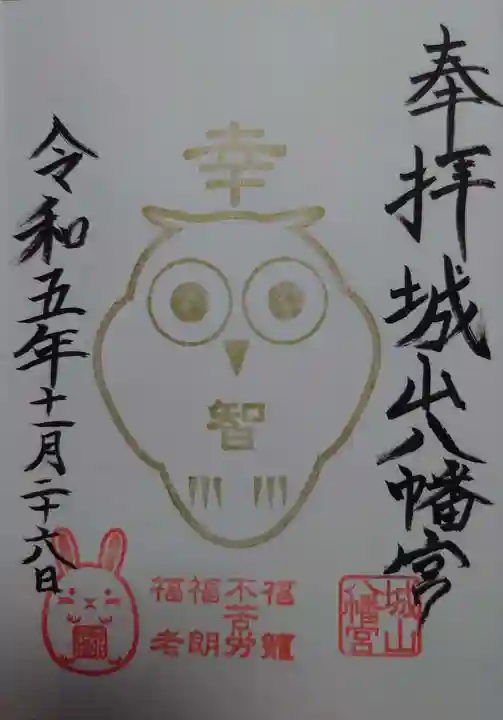 奉拝
城山八幡宮
幸
智
令和五年十一月二十六日
福籠
不苦労
福朗
福老
城山
八幡宮